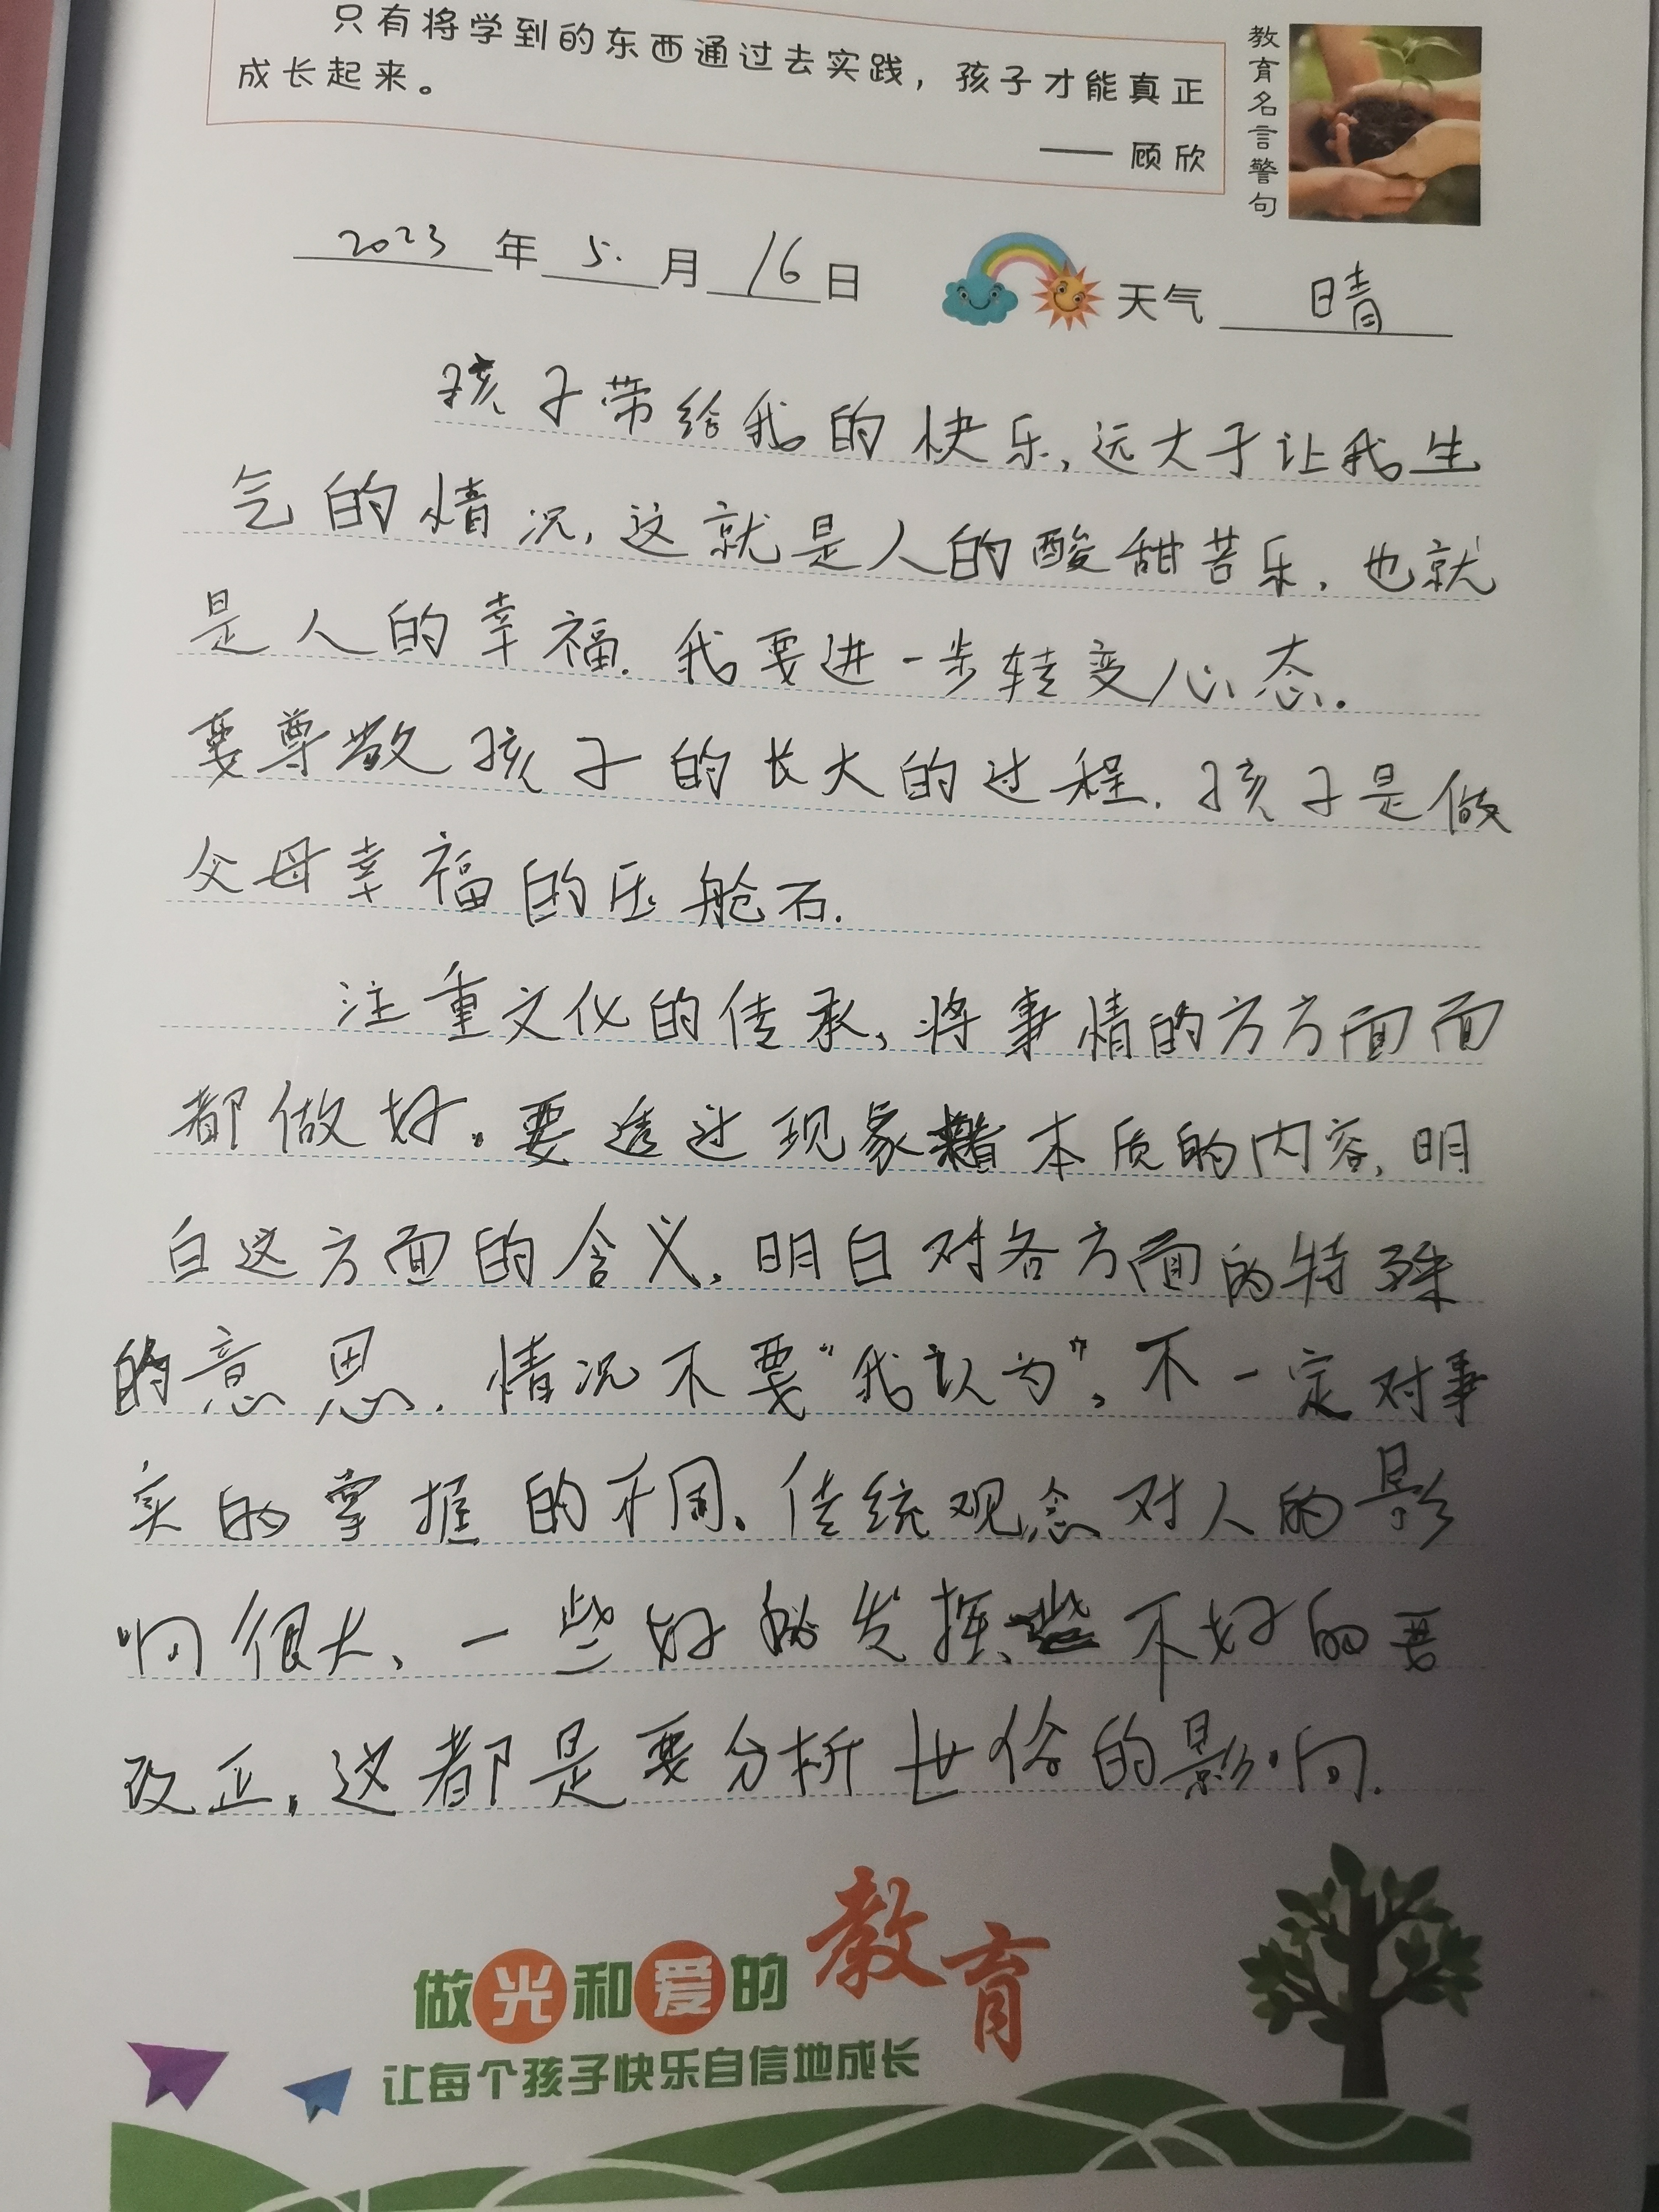 只有将学到的东西通过去实践，孩子才能真正
成长起来。
—— 顾欣
教育名言警句
2023年5.月16日 天气 晴
孩子带给我的快乐，远大于让我生
气的情况，这就是人的酸甜苦乐，也就
是人的幸福.我要进一步转变心态.
要尊敬孩子的长大的过程.孩子是做
父母幸福的压舱石.
注重文化的传承，将事情的方方面面
都做好。要透过现象看本质的内容，明
白这方面的含义，明白对各方面的特殊
的意思.情况不要“我认为”，不一定对事
实的掌握的不同。传统观念对人的影
响很大，一些好的发挥、不好的要
改正。这都是要分析世俗的影响.
做光和爱的教育
让每个孩子快乐自信地成长